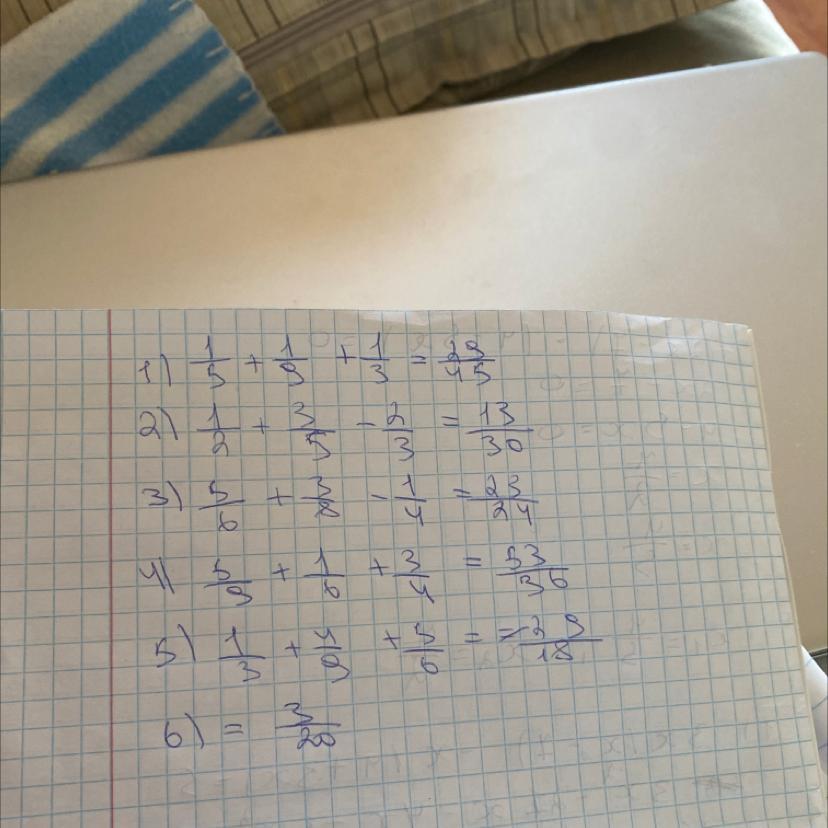 1) 1/5 + 1/9 + 1/3 = 29/45
2) 1/2 + 3/5 - 2/3 = 13/30
3) 5/6 + 3/8 - 1/4 = 23/24
4) 5/9 + 1/6 + 3/4 = 53/36
5) 1/3 + 4/9 + 5/6 = 29/18
6) = 3/20